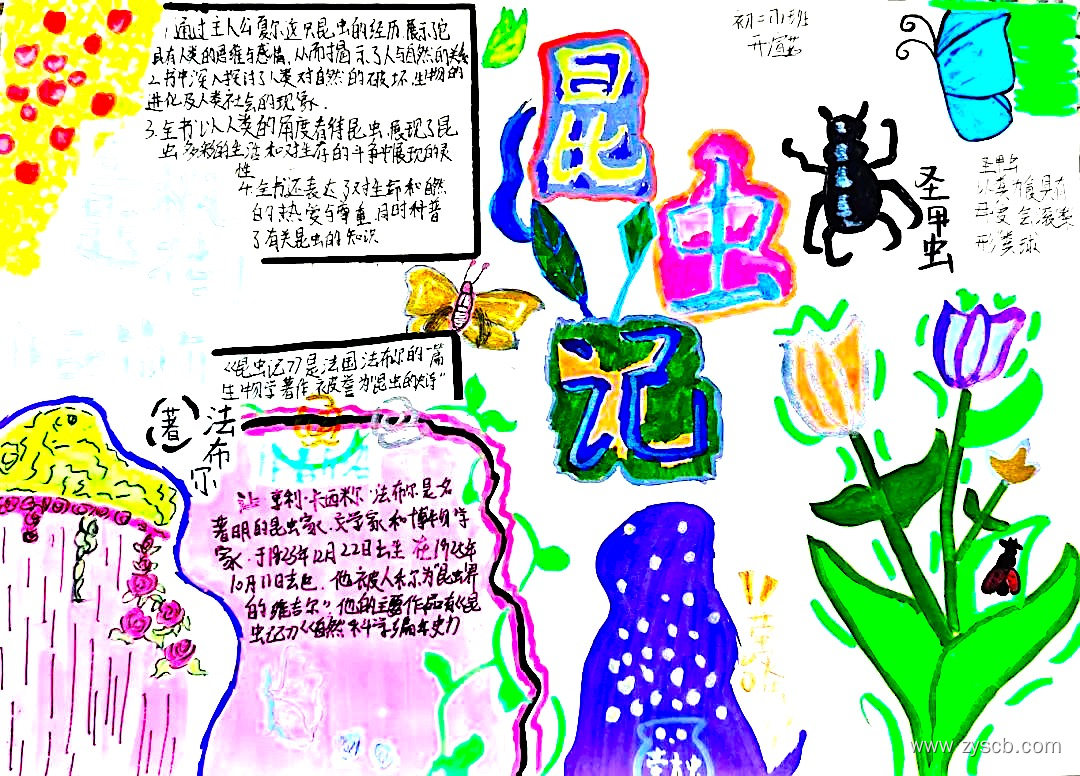 1.通过主人公夏尔这只昆虫的经历,展示它
具有人类的思维与感情,从而揭示了人与自然的关系
2.书中深入探讨了人类对自然的破坏生物的
进化及人类社会的现象.
3.全书以人类的角度看待昆虫,展现了昆
虫多彩的生活和对生存的斗争中展现的灵
性
4.全书还表达了对生命和自然
的热爱与尊重,同时科普
了有关昆虫的知识
初二(1)班
昆
虫
记
圣甲虫
圣甲
形粪球
《昆虫记》是法国法布尔的一篇
生物学著作被誉为"昆虫的史诗"
(著)
法布尔
让 亨利·卡西米尔·法布尔是名
著明的昆虫家、文学家和博物学
家、于1923年12月22日出生 在
10月11日去世.他被人称为"昆虫界
的维吉尔"他的主要作品有《昆
虫记》《自然科学编年史》
www.zyscb.com